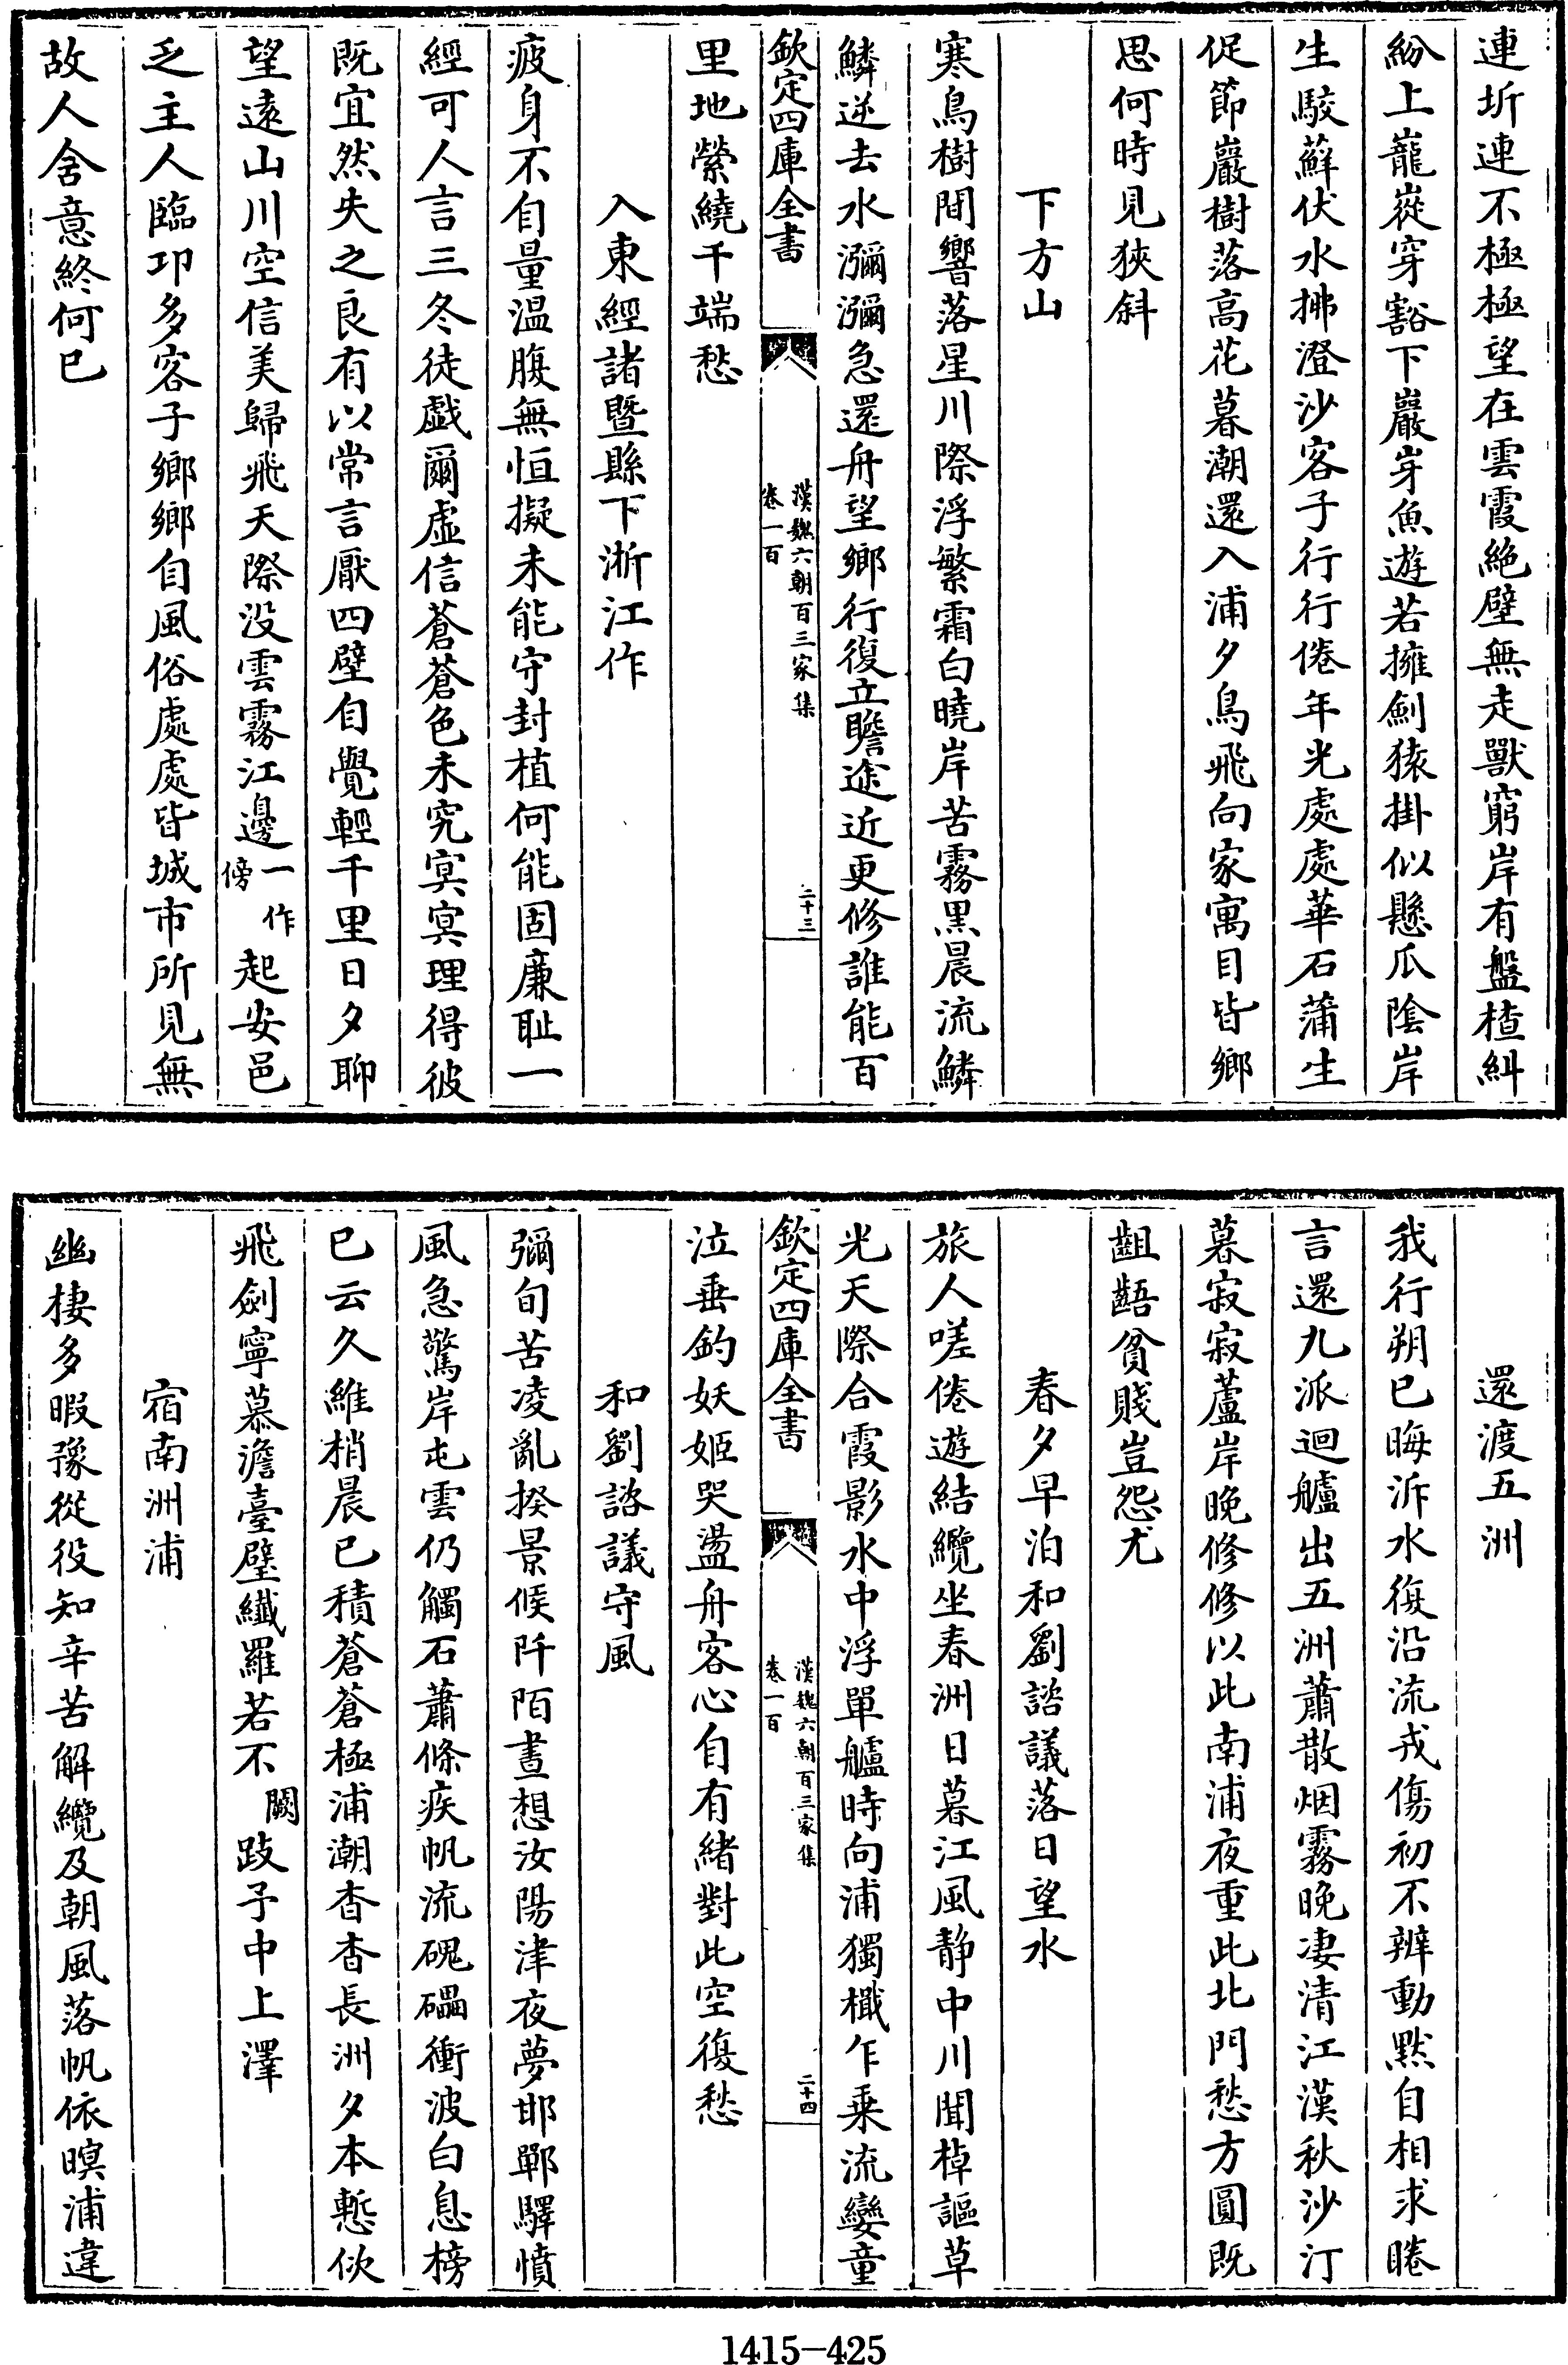 連圻連不極極望在雲霞絶壁無走獸窮岸有盤楂糾
紛上巃嵸穿豁下巖穿魚遊若擁劍猿掛似懸瓜陰岸
生駮蘚伏水拂澄沙客子行行倦年光處處華石蒲生
促節巖樹落高花暮潮還入浦夕鳥飛向家寓目皆鄉
思何時見狹斜
下方山
寒鳥樹間響落星川際浮繁霜白曉岸苦霧黑晨流鱗
鱗逆去水瀰瀰急還舟望鄉行復立瞻途近更修誰能百
欽定四庫全書
漢魏六朝百三家集
卷一百
二十三
里地縈繞千端愁
入東經諸暨縣下淅江作
疲身不自量温腹無恒擬未能守封植何能固廉耻一
經可人言三冬徒戲爾虛信蒼蒼色未究㝠㝠理得彼
既宜然失之良有以常言厭四壁自覺輕千里日夕聊
望遠山川空信美歸飛天際没雲霧江邊一作傍起安邑
乏主人臨邛多客子鄉鄉自風俗處處皆城市所見無
故人含意終何已
還渡五洲
我行朔已晦泝水復沿流戎傷初不辨動黙自相求睠
言還九派迴艫出五洲蕭散烟霧晚凄清江漢秋沙汀
暮寂寂蘆岸晚修修以此南浦夜重此北門愁方圓既
齟齬貧賤豈怨尤
春夕早泊和劉諮議落日望水
旅人嗟倦遊結纜坐春洲日暮江風静中川聞棹謳草
光天際合霞影水中浮單艫時向浦獨檝乍乗流孌童
欽定四庫全書
漢魏六朝百三家集
卷一百
二十四
泣垂釣妖姬哭盪舟客心自有緒對此空復愁
和劉諮議守風
彌旬苦凌亂揆景候阡陌晝想汝陽津夜夢邯鄲驛憤
風急驚岸屯雲仍觸石蕭條疾帆流磈礧衝波白息榜
已云久維梢晨已積蒼蒼極浦潮杳杳長洲夕本慙佽
飛劍寧慕澹臺璧纎羅若不闕跂予中上澤
宿南洲浦
幽棲多暇豫從役知辛苦解纜及朝風落帆依暝浦違
1415-425